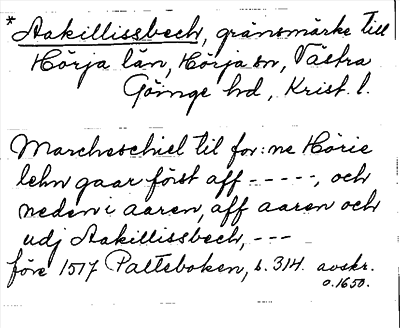 * Aakillissbech, gränsmärke till
Hörja län, Hörja sn, Västra
Göinge hd, Krist. l.
Marcheschiel til for:ne Hörie
lehn gaar först aff -----, och
neden i aaren, aff aaren och
udj Aakillissbech, ---
före 1517 Palteboken, s. 314. avskr.
o. 1650.